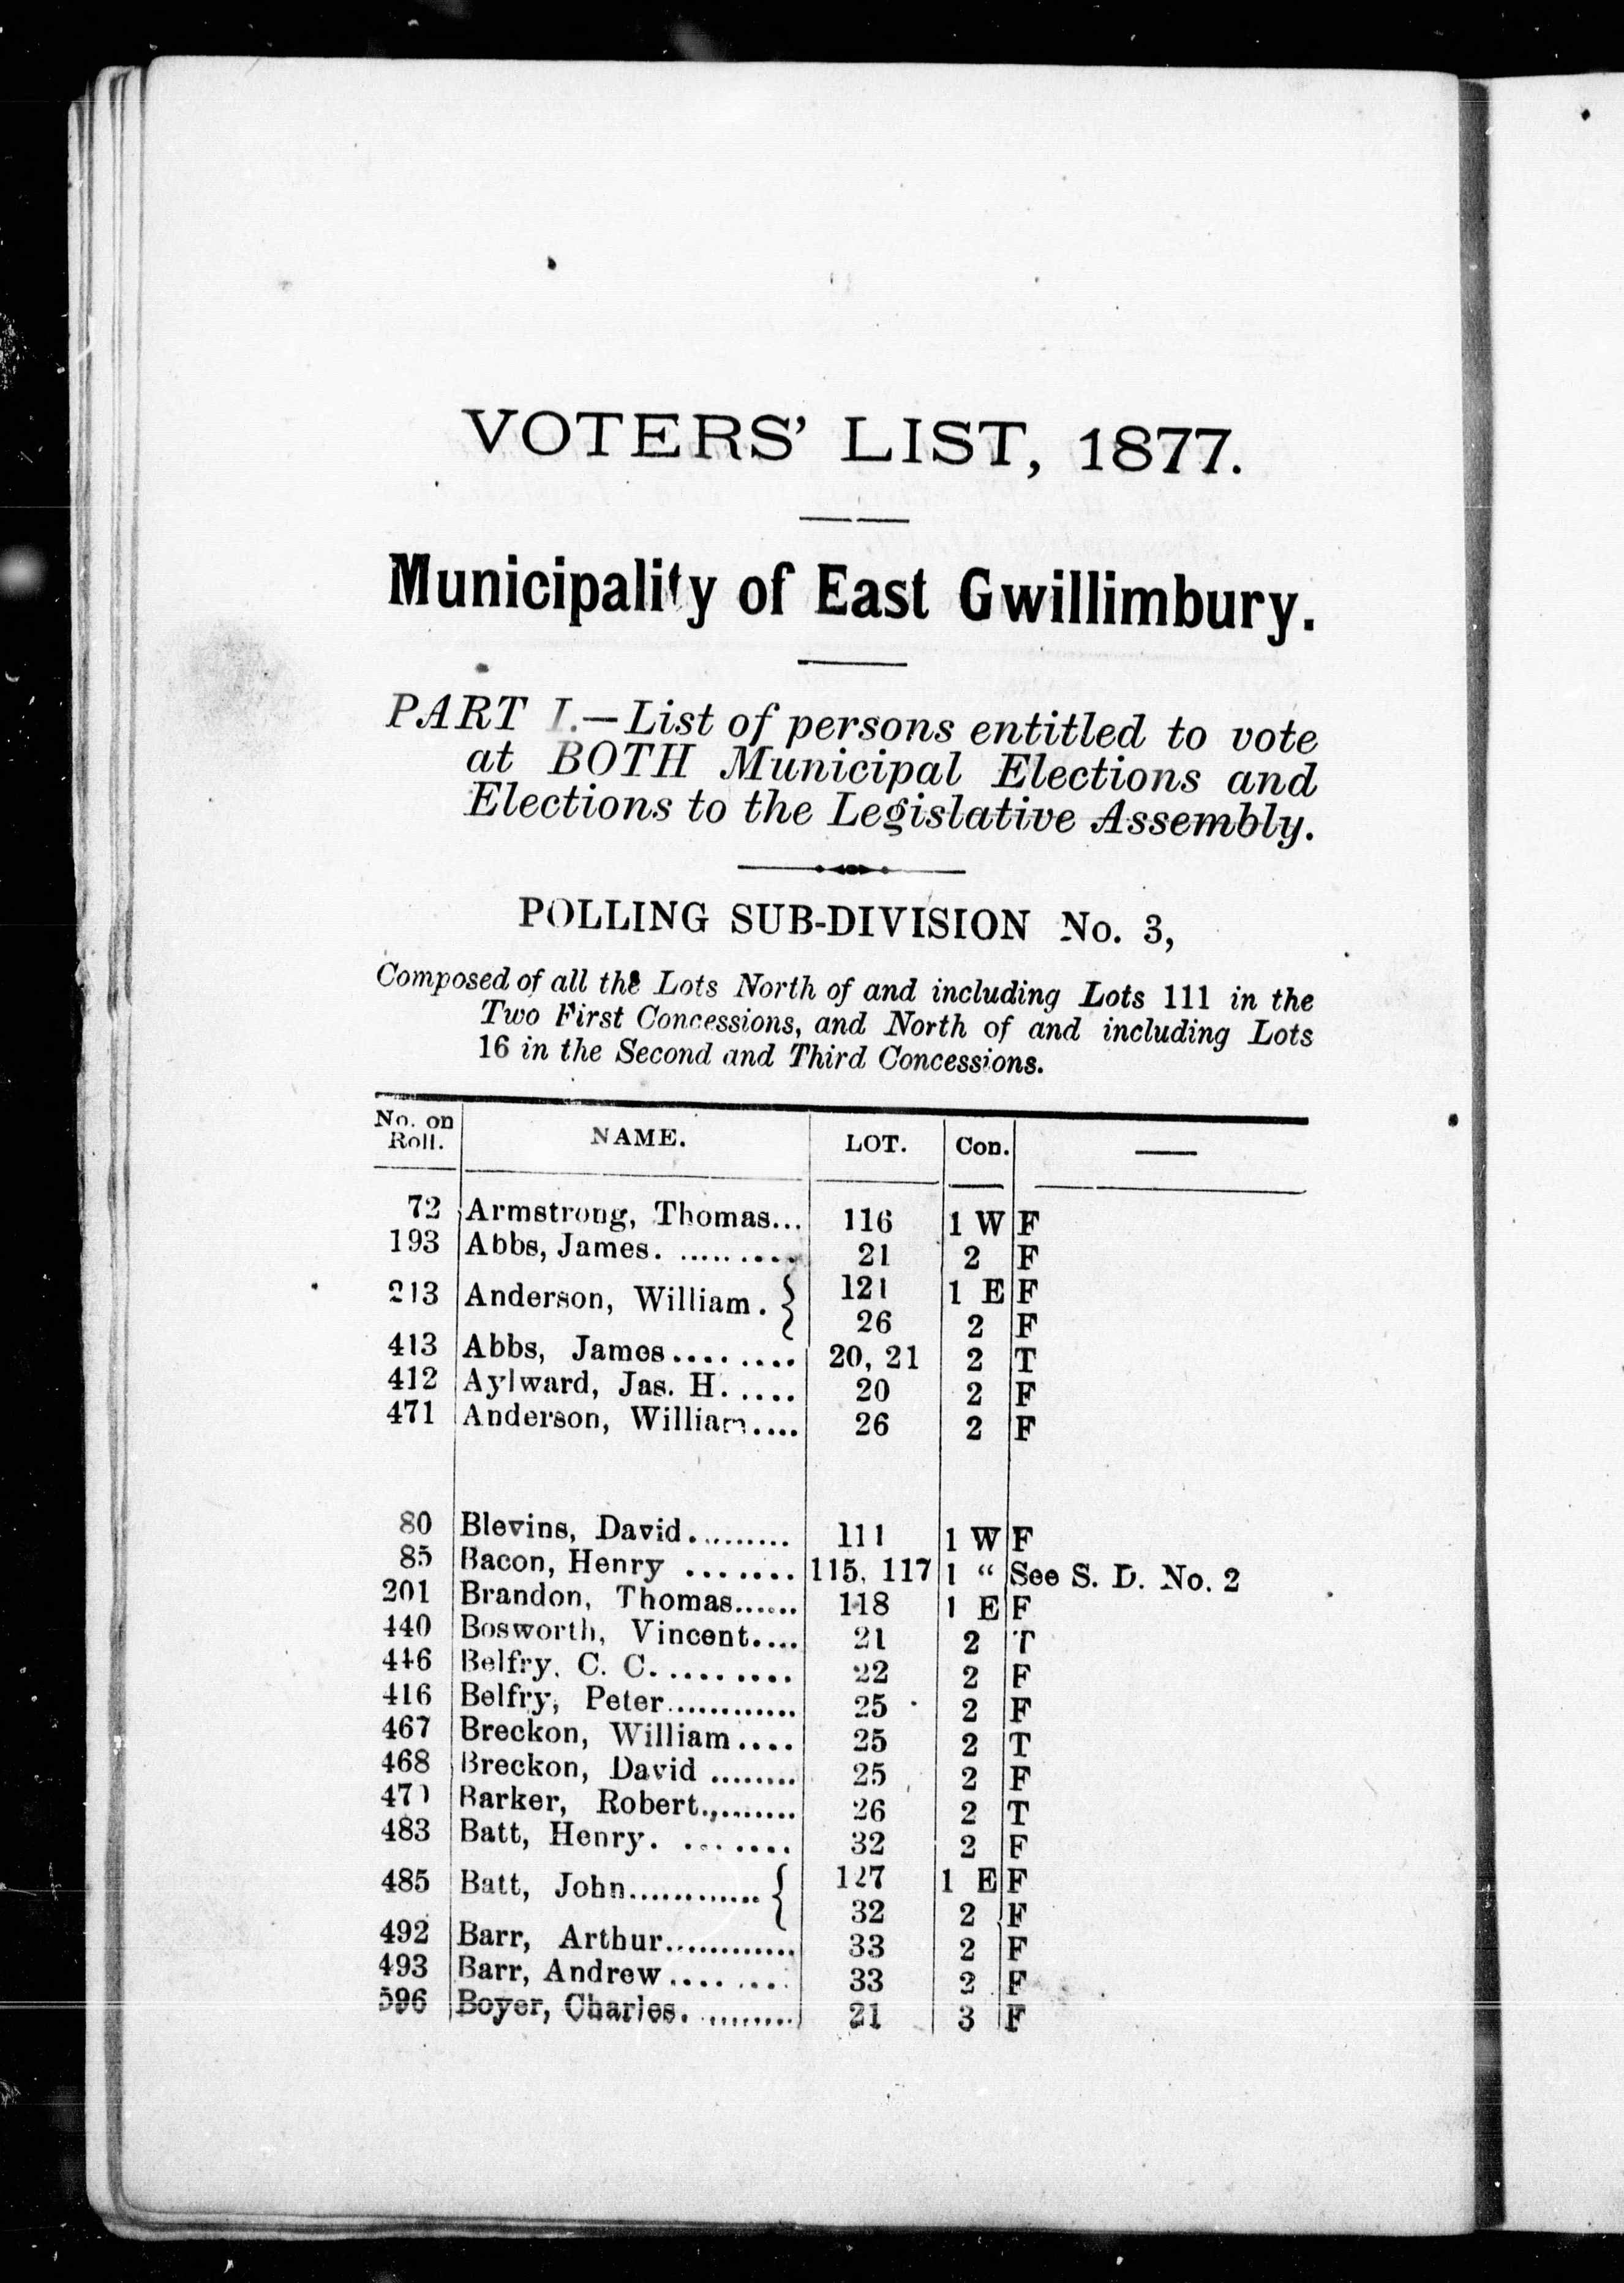 VOTERS' LIST, 1877.
Municipality of East Gwillimbury.
PART I.—List of persons entitled to vote
at BOTH Municipal Elections and
Elections to the Legislative Assembly.
POLLING SUB-DIVISION No. 3,
Composed of all the Lots North of and including Lots 111 in the
Two First Concessions, and North of and including Lots
16 in the Second and Third Concessions.
No. on Roll. NAME. LOT. Con. —
72 Armstrong, Thomas... 116 1 W F
193 Abbs, James. ......... 21 2 F
213 Anderson, William. } 121 1 E F
26 2 F
413 Abbs, James........ 20, 21 2 T
412 Aylward, Jas. H. .... 20 2 F
471 Anderson, William.... 26 2 F
80 Blevins, David.......... 111 1 W F
85 Bacon, Henry ....... 115, 117 1 " See S. D. No. 2
201 Brandon, Thomas...... 118 1 E F
440 Bosworth, Vincent.... 21 2 T
446 Belfry, C. C. ........ 22 2 F
416 Belfry, Peter............. 25 2 F
467 Breckon, William.... 25 2 T
468 Breckon, David ........ 25 2 F
470 Barker, Robert.,....... 26 2 T
483 Batt, Henry. ........ 32 2 F
485 Batt, John............. { 127 1 E F
32 2 F
492 Barr, Arthur............. 33 2 F
493 Barr, Andrew........ 33 2 F
596 Boyer, Charles. ......... 21 3 F